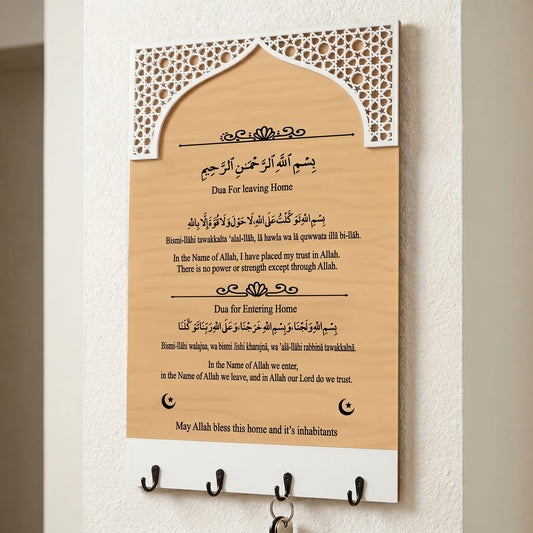 بِسْمِ ٱللَّهِ ٱلرَّحْمَٰنِ ٱلرَّحِيمِ
Dua For leaving Home
بِسْمِ اللهِ تَوَكَّلْتُ عَلَى اللهِ، لَا حَوْلَ وَلَا قُوَّةَ إِلَّا بِاللهِ
Bismi-llāhi tawakkalta 'alal-llāh, lā hawla wa lā quwwata illā bi-llāh.
In the Name of Allah, I have placed my trust in Allah.
There is no power or strength except through Allah.
Dua for Entering Home
بِسْمِ اللهِ وَلَجْنَا، وَبِسْمِ اللهِ خَرَجْنَا، وَعَلَى اللهِ رَبِّنَا تَوَكَّلْنَا
Bismil-llāhi walajua, wa bismi lishi kharajnā, wa 'alā-llāhi rabbinā tawakkalnā.
In the Name of Allah we enter,
in the Name of Allah we leave, and in Allah our Lord do we trust.
May Allah bless this home and it's inhabitants